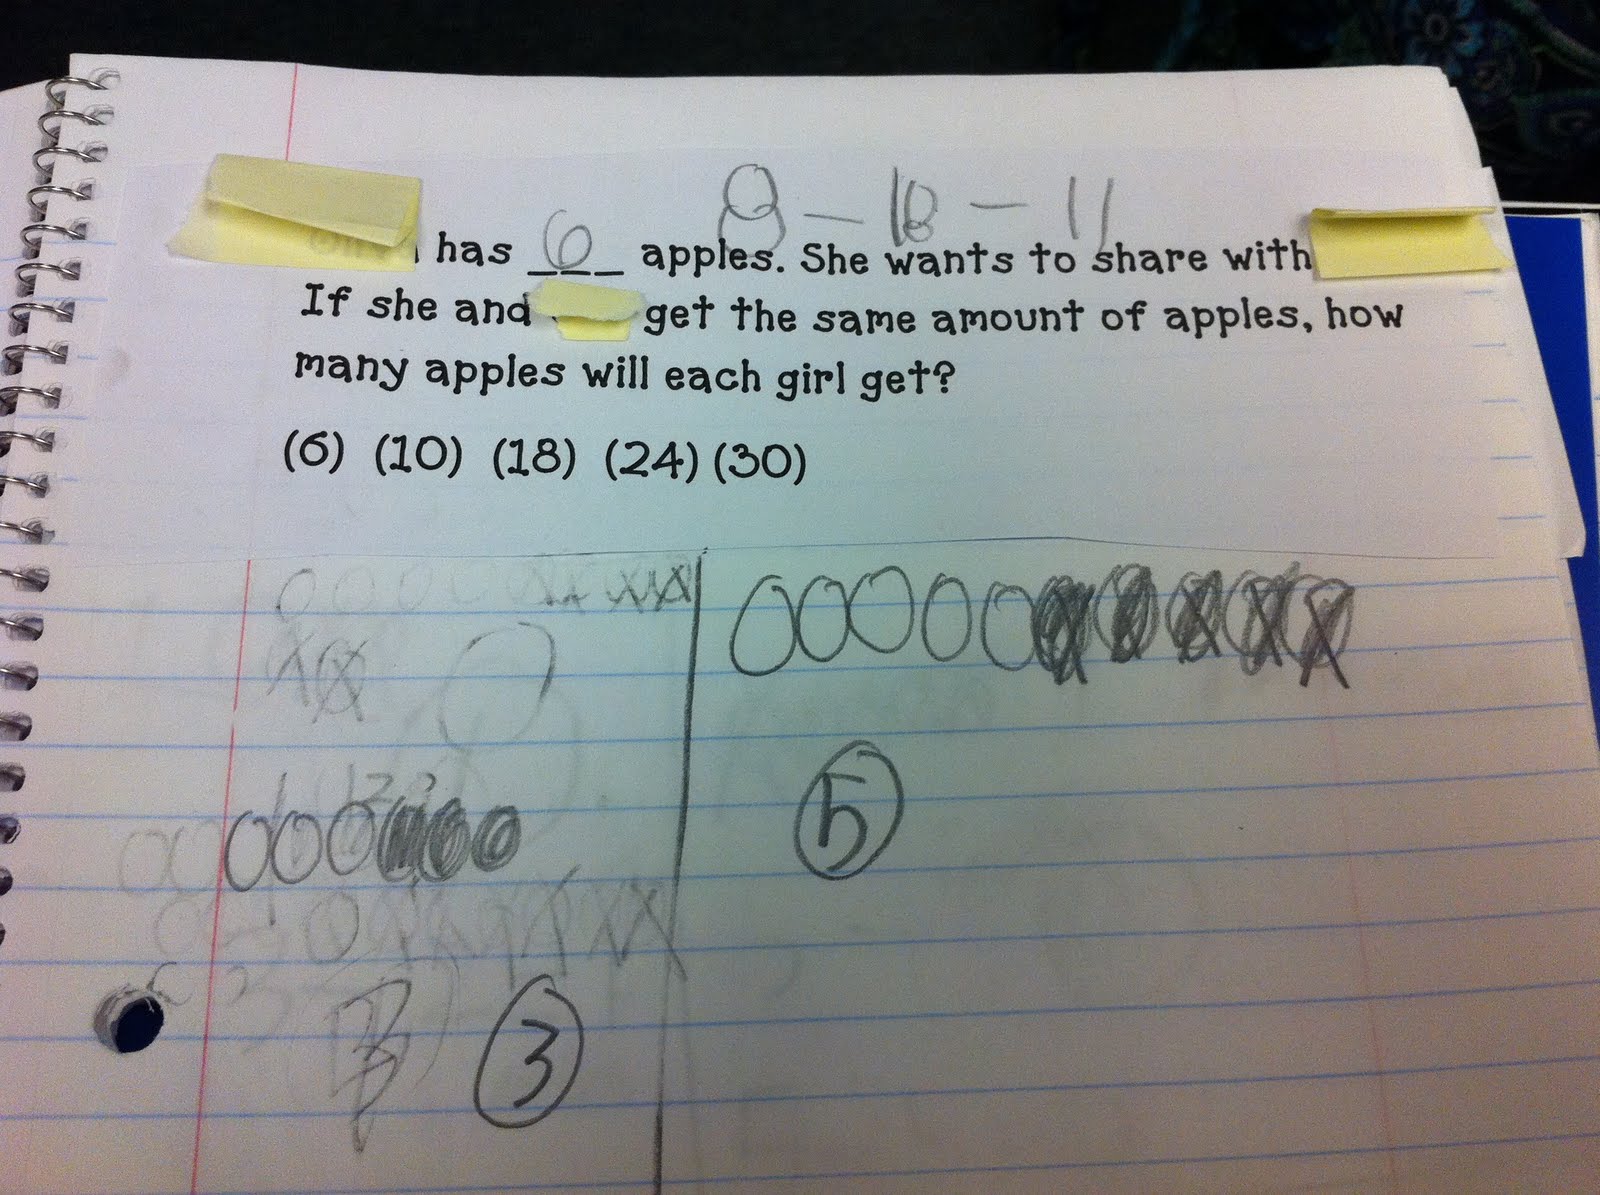 8 - 10 - 11
has 6 apples. She wants to share with
If she and get the same amount of apples, how
many apples will each girl get?
(6) (10) (18) (24) (30)
5
3